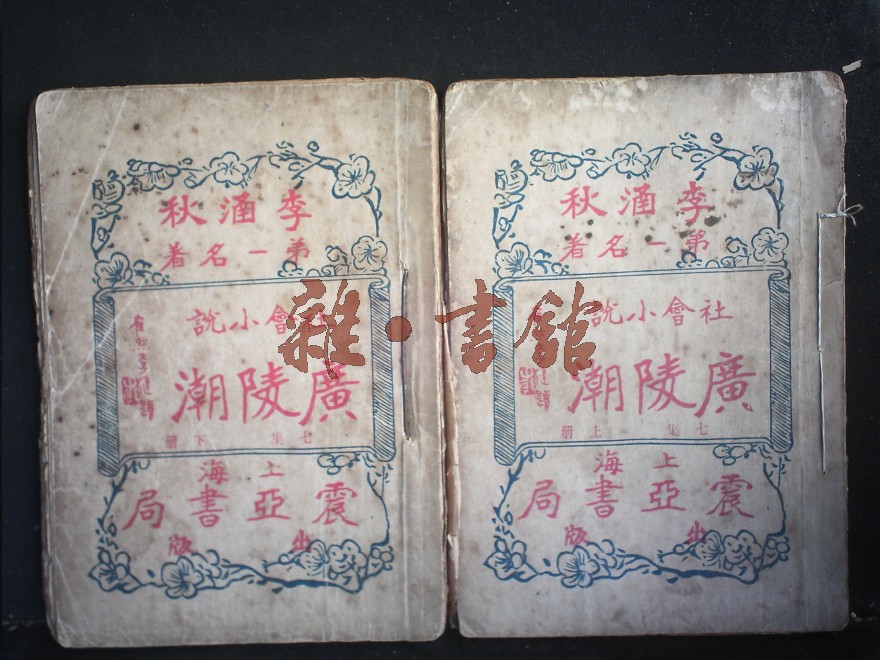 李涵秋
第一名著
社會小說
廣陵潮
七集 下册
上海
震亞書局
出版
李涵秋
第一名著
社會小說
廣陵潮
七集 上册
上海
震亞書局
出版
雜·書館